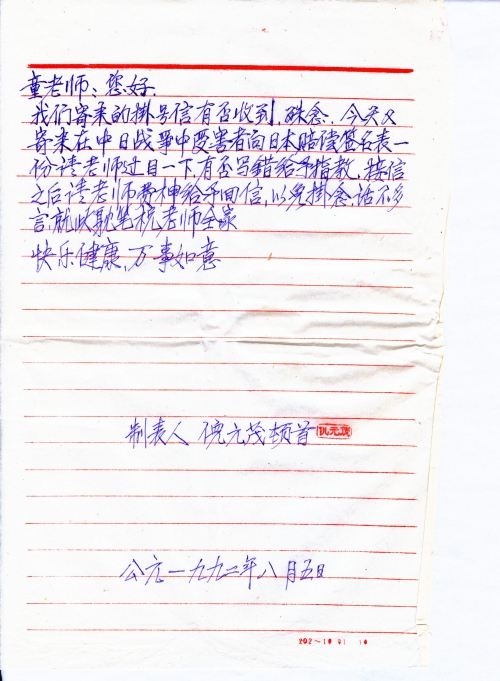 童老师：您好.
我们寄来的掛号信有否收到.殊念.今天又
寄来在中日战争中受害者向日本赔偿签名表一
份请老师过目一下有否写錯给予指教.接信
之后请老师费神给予回信,以免掛念.话不多
言.就此耽笔祝老师全家
快乐健康,万事如意
制表人 倪元茂顿首
公元一九九二年八月五日
202-10 91 10